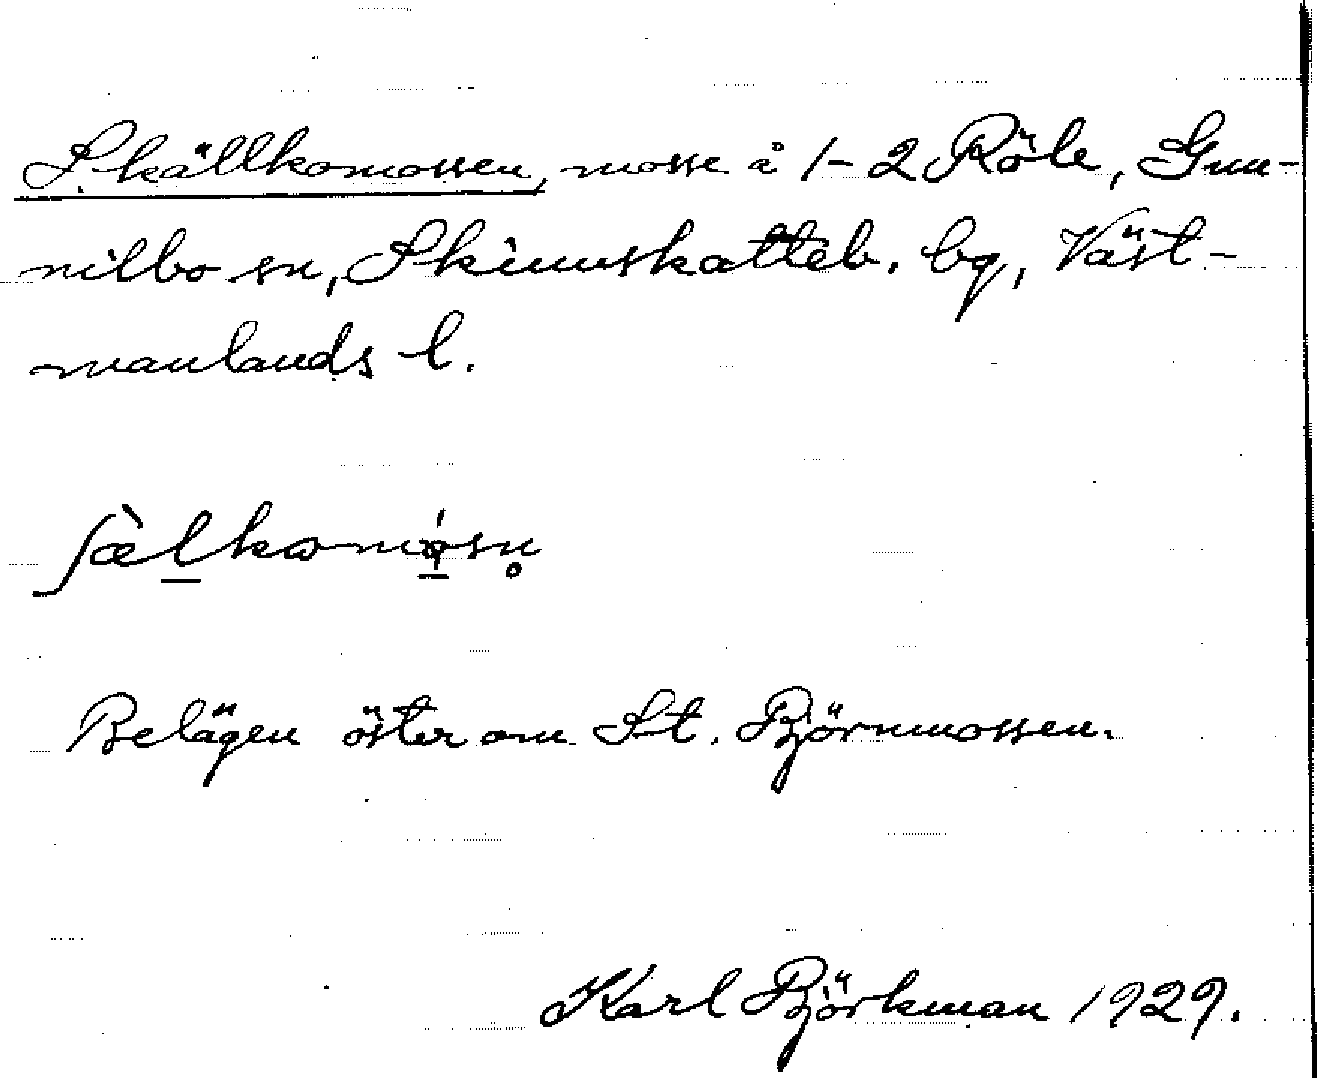 Skällkomossen, mosse å 1-2 Röle, Gun-
nilbo sn, Skinnskatteb. bg, Väst-
manlands l.
ʃæ̀lkomósn̥
Belägen öster om St. Björnmossen.
Karl Björkman 1929.